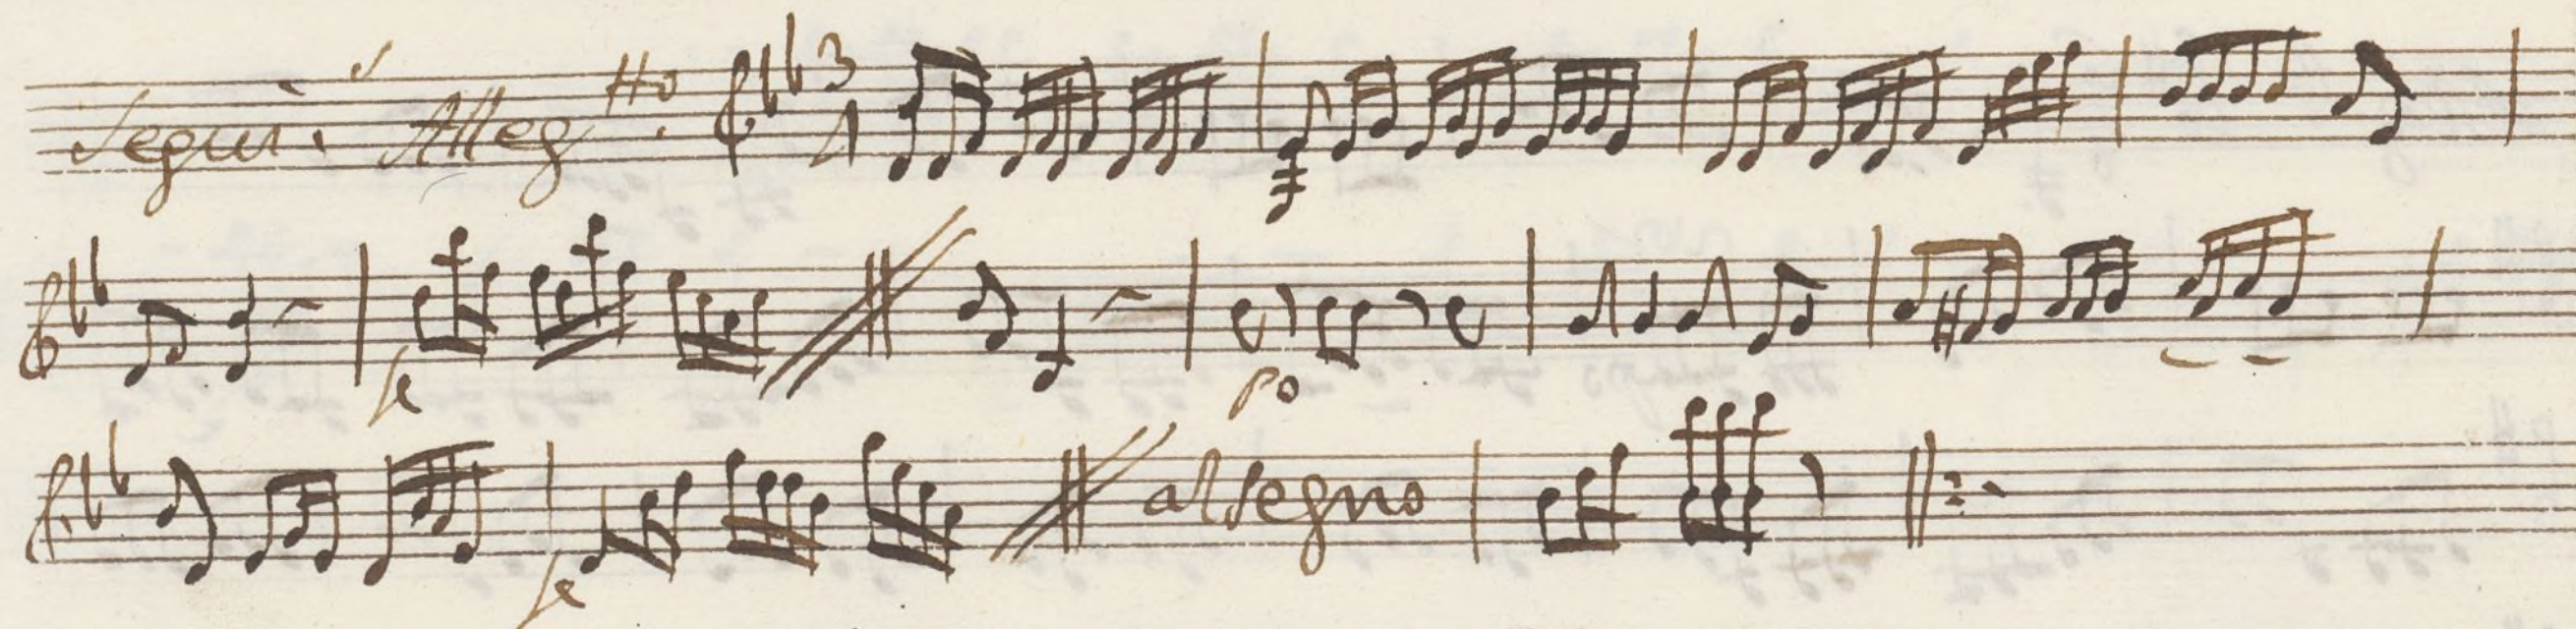 Segui.s Alleg.tto 3
4
fe po
fe al segno